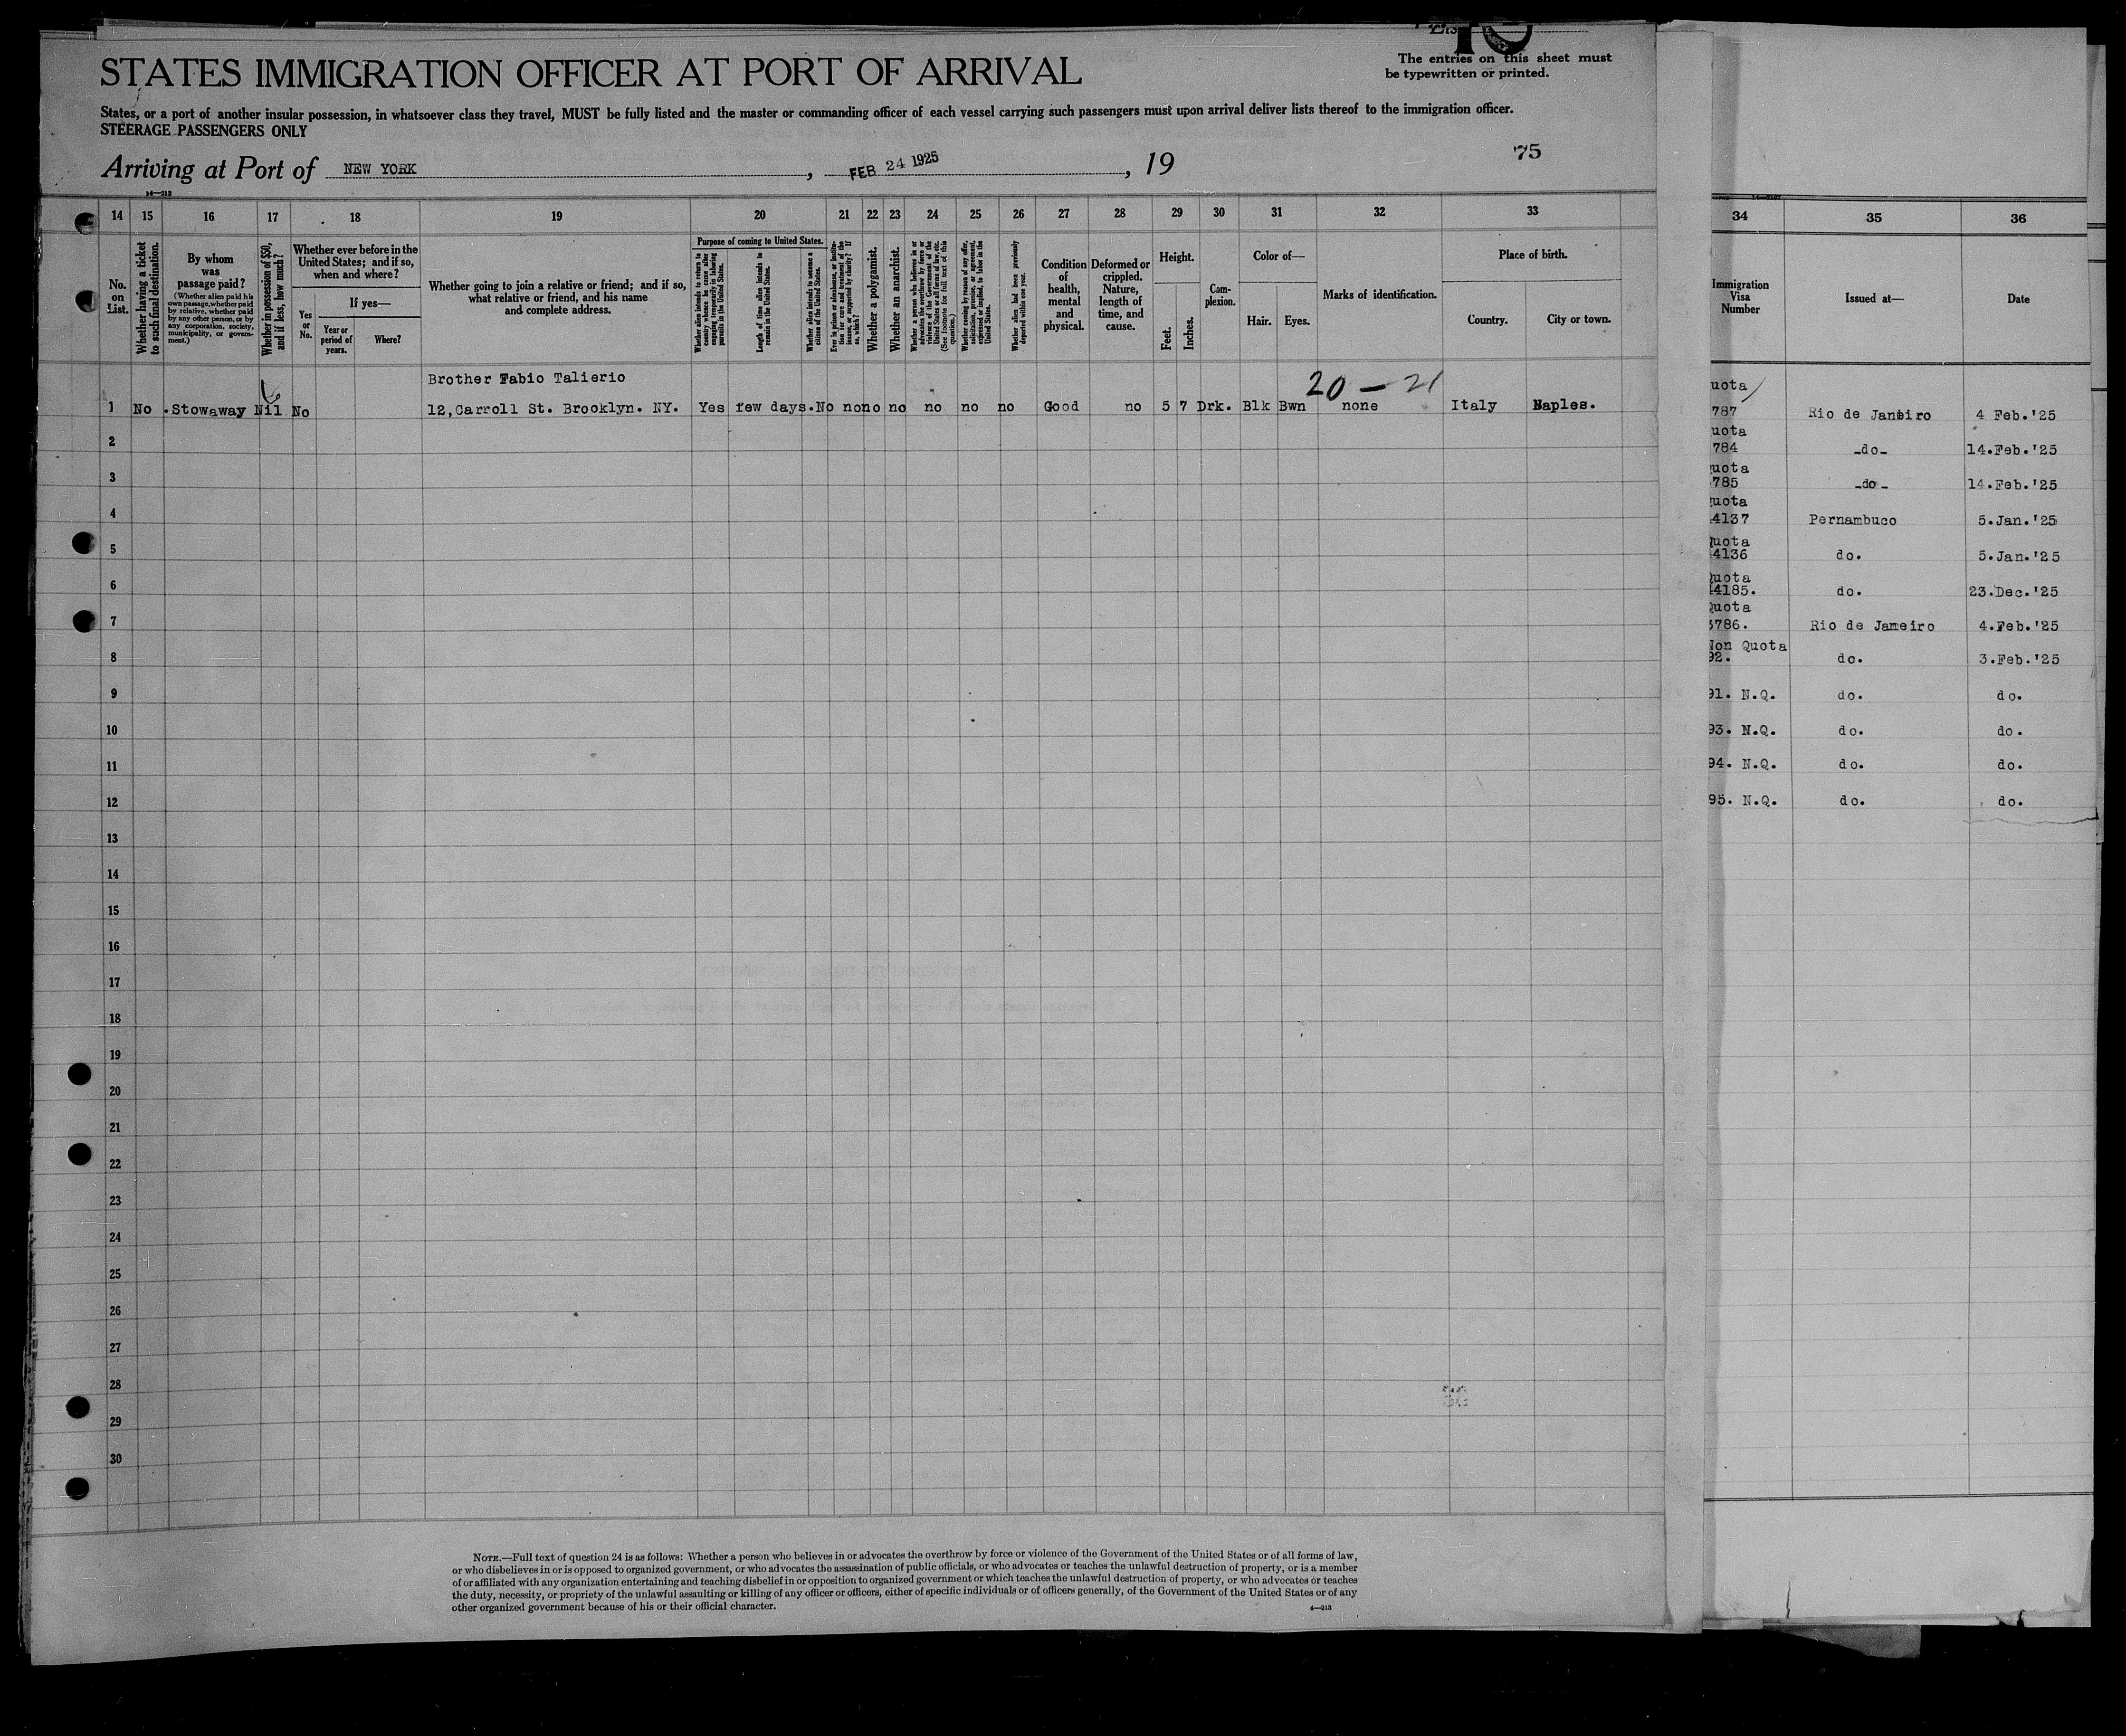 The entries on this sheet must
be typewritten or printed.
STATES IMMIGRATION OFFICER AT PORT OF ARRIVAL
States, or a port of another insular possession, in whatsoever class they travel, MUST be fully listed and the master or commanding officer of each vessel carrying such passengers must upon arrival deliver lists thereof to the immigration officer.
STEERAGE PASSENGERS ONLY
Arriving at Port of NEW YORK, FEB 24 1925, 19
75
14 15 16 17 18 19 20 21 22 23 24 25 26 27 28 29 30 31 32 33
No. on List.
Whether having a ticket to such final destination.
By whom was passage paid?
(Whether alien paid his own passage, whether paid by relative, whether paid by any other person, or by any corporation, society, municipality, or government.)
Whether in possession of $50, and if less, how much?
Whether ever before in the United States; and if so, when and where?
Yes or No.
If yes—
Year or period of years.
Where?
Whether going to join a relative or friend; and if so, what relative or friend, and his name and complete address.
Purpose of coming to United States.
Whether alien intends to return to country whence he came after engaging temporarily in laboring pursuits in the United States.
Length of time alien intends to remain in the United States.
Whether alien intends to become a citizen of the United States.
Ever in prison or almshouse, or institution for care and treatment of the insane, or supported by charity? If so, which?
Whether a polygamist.
Whether an anarchist.
Whether a person who believes in or advocates the overthrow by force or violence of the Government of the United States or all forms of law, etc. (See footnote for full text of this question.)
Whether coming by reason of any offer, solicitation, promise, or agreement, expressed or implied, to labor in the United States.
Whether alien had been previously deported within one year.
Condition of health, mental and physical.
Deformed or crippled. Nature, length of time, and cause.
Height.
Feet.
Inches.
Complexion.
Color of—
Hair.
Eyes.
Marks of identification.
Place of birth.
Country.
City or town.
Brother Fabio Talierio
20 — 21
1 No .Stowaway Nil No 12,Carroll St. Brooklyn. NY. Yes few days. No no no no no no no Good no 5 7 Drk. Blk Bwn none Italy Naples.
2
3
4
5
6
7
8
9
10
11
12
13
14
15
16
17
18
19
20
21
22
23
24
25
26
27
28
29
30
NOTE.—Full text of question 24 is as follows: Whether a person who believes in or advocates the overthrow by force or violence of the Government of the United States or of all forms of law,
or who disbelieves in or is opposed to organized government, or who advocates the assassination of public officials, or who advocates or teaches the unlawful destruction of property, or is a member
of or affiliated with any organization entertaining and teaching disbelief in or opposition to organized government or which teaches the unlawful destruction of property, or who advocates or teaches
the duty, necessity, or propriety of the unlawful assaulting or killing of any officer or officers, either of specific individuals or of officers generally, of the Government of the United States or of any
other organized government because of his or their official character.
34 35 36
Immigration Visa Number
Issued at—
Date
uota
787 Rio de Janeiro 4 Feb.'25
uota
784 -do- 14.Feb.'25
uota
785 -do- 14.Feb.'25
uota
4137 Pernambuco 5.Jan.'25
Quota
4136 do. 5.Jan.'25
Quota
4185. do. 23.Dec.'25
Quota
3786. Rio de Jameiro 4.Feb.'25
Non Quota
92. do. 3.Feb.'25
91. N.Q. do. do.
93. N.Q. do. do.
94. N.Q. do. do.
95. N.Q. do. do.